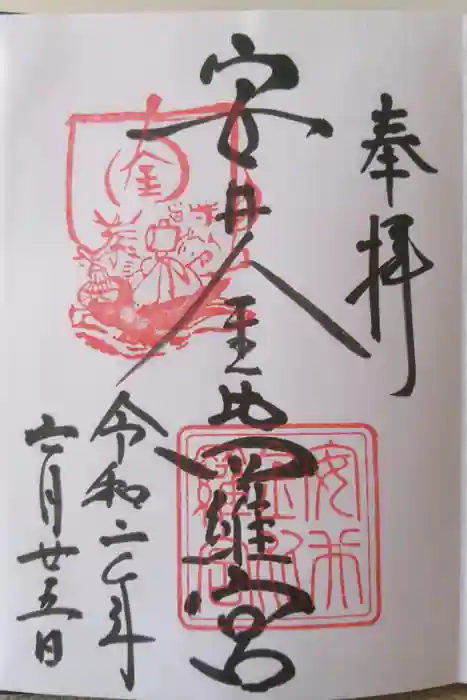 奉拝
安井金比羅宮
令和二年
六月廿五日
金